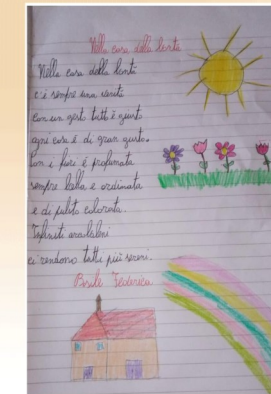 Nella casa della bontà
Nella casa della bontà
c'è sempre una verità
con un gesto tutto è giusto
ogni cosa è di gran gusto.
Con i fiori è profumata
sempre bella e ordinata
e di pulito colorata.
Infiniti arcobaleni
ci rendono tutti più sereni.
Basile Federica